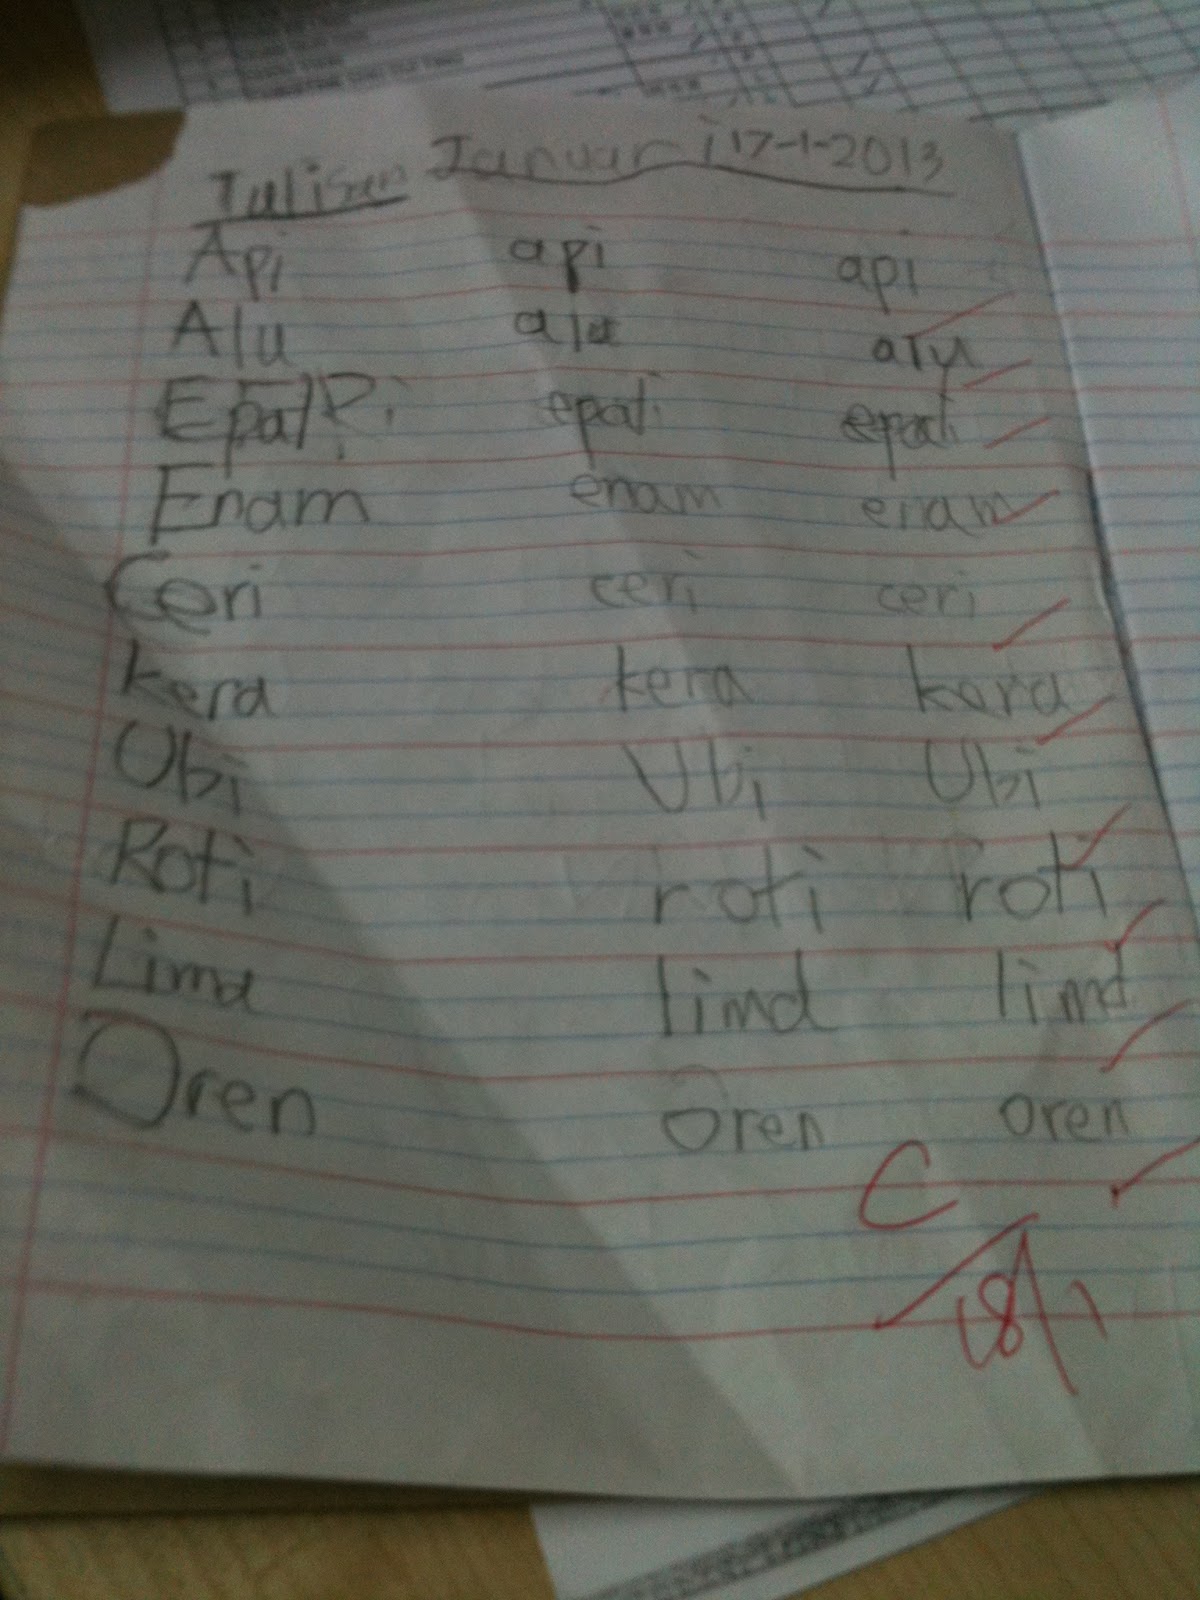 Tulisan Januari 17-1-2013
Api api api
Alu alu alu
Epal epal epal
Enam enam enam
Ceri ceri ceri
kera kera kera
Ubi Ubi Ubi
Roti roti roti
Lima lima lima
Oren Oren oren
C
18/1